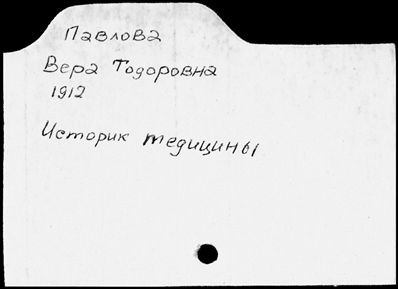 Павлова
Вера Тодоровна
1912
Историк медицины